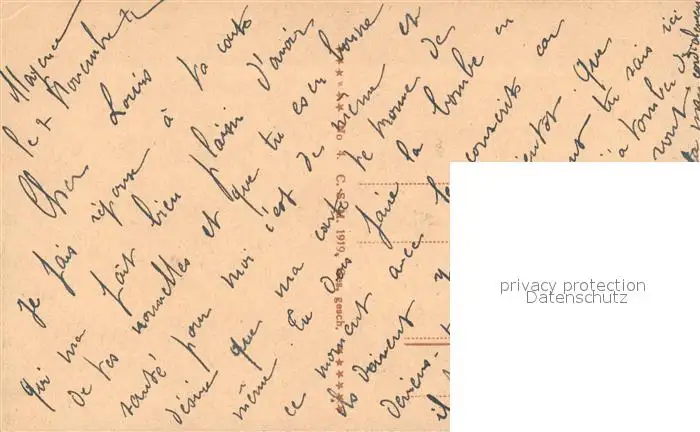 Mayence
le 2 Novembre
Cher Louis
Je fais réponse à ta carte
qui ma fait bien plaisir d'avoir
de tes nouvelles et que tu es en bonne
santé pour moi c'est de même et
désire que ma carte te trouve de
même Tu dois faire la bombe en
ce moment avec les conscrits car
ils doivent
deviens-t
il
que
tu sais ici
à tomber
sont
C. S. M. 1919, ges. gesch.
privacy protection
Datenschutz